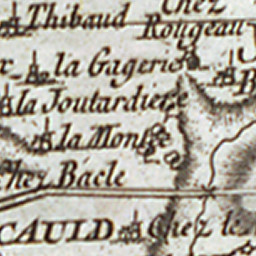 Thibaud
Chez
Rougeau
la Gagerie
la Joutardiere
la Monse
Chez Bácle
CAULD
Chez le